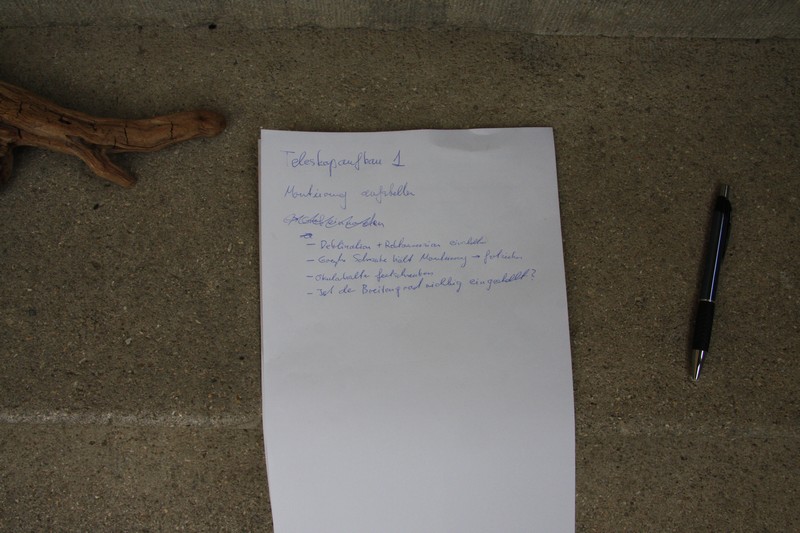 Teleskopaufbau 1
Montierung aufstellen
- Deklination + Rektaszension einstellen
- Große Schraube hält Montierung →
- festschrauben
- Ist der Breitengrad richtig eingestellt?